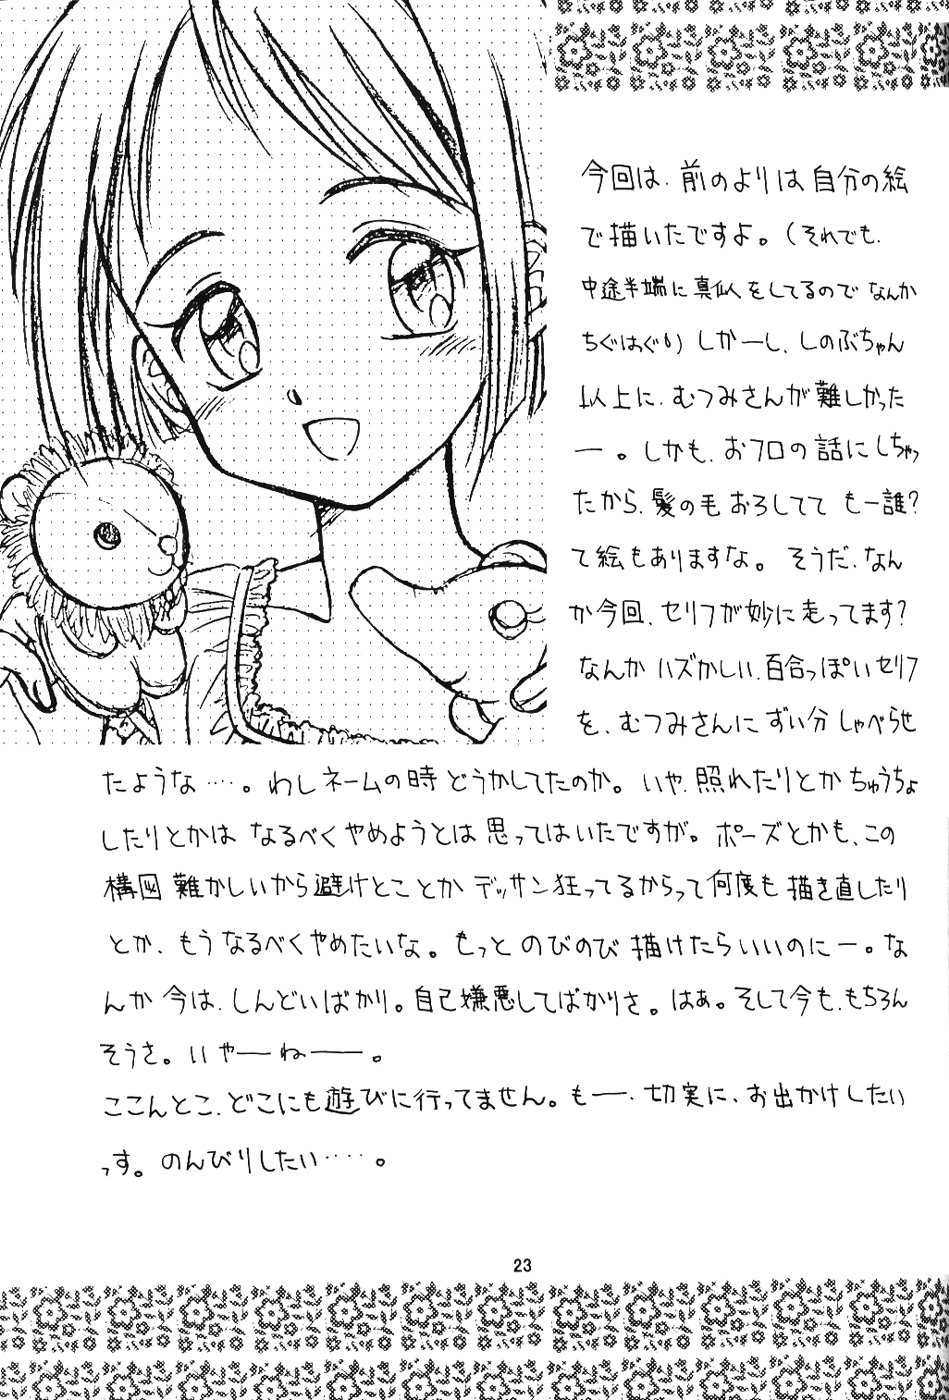 今回は、前のよりは自分の絵
で描いたですよ。(それでも、
中途半端に真似をしてるのでなんか
ちぐはぐ。)しかーし、しのぶちゃん
以上に、むつみさんが難しかった
ー。しかも、おフロの話にしちゃっ
たから、髪の毛おろしてて もー誰?
て絵もありますな。そうだ、なん
か今回、セリフが妙に走ってます?
なんかハズかしい、百合っぽいセリフ
を、むつみさんにずい分しゃべらせ
たような‥‥。わしネームの時どうかしてたのか。いや、照れたりとかちゅうちょ
したりとかは なるべくやめようとは思ってはいたですが。ポーズとかも、この
構図難かしいから避けとことかデッサン狂ってるからって何度も描き直したり
とか、もうなるべくやめたいな。もっとのびのび描けたらいいのにー。な
んか今は、しんどいばかり。自己嫌悪してばかりさ。はぁ。そして今も、もちろん
そうさ。いやーねー。
ここんとこ、どこにも遊びに行ってません。もー、切実に、お出かけしたい
っす。のんびりしたい‥‥。
23